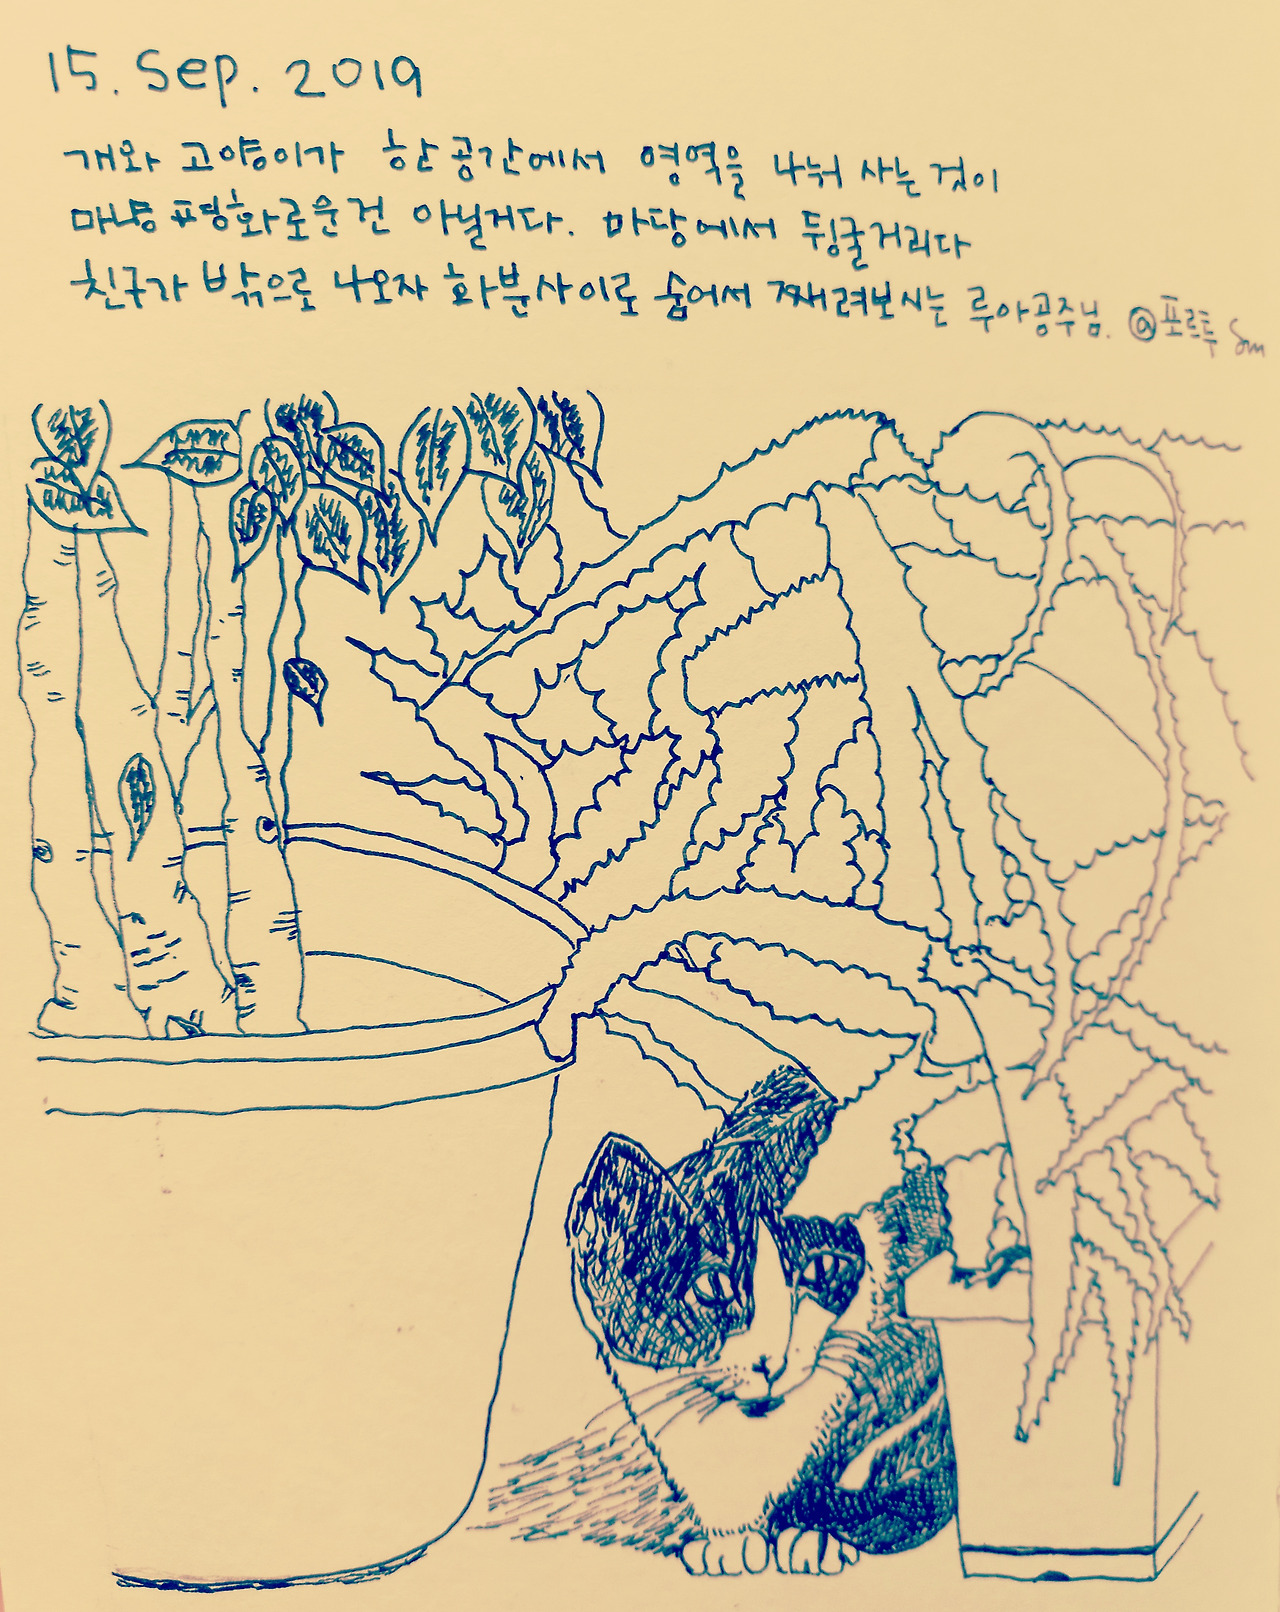 15. Sep. 2019
개와 고양이가 한 공간에서 영역을 나눠 사는 것이
마냥 평화로운 건 아닐거다. 마당에서 뒹굴거리다
친구가 밖으로 나오자 화분 사이로 숨어서 째려보시는 루아공주님. @포르투 Sm